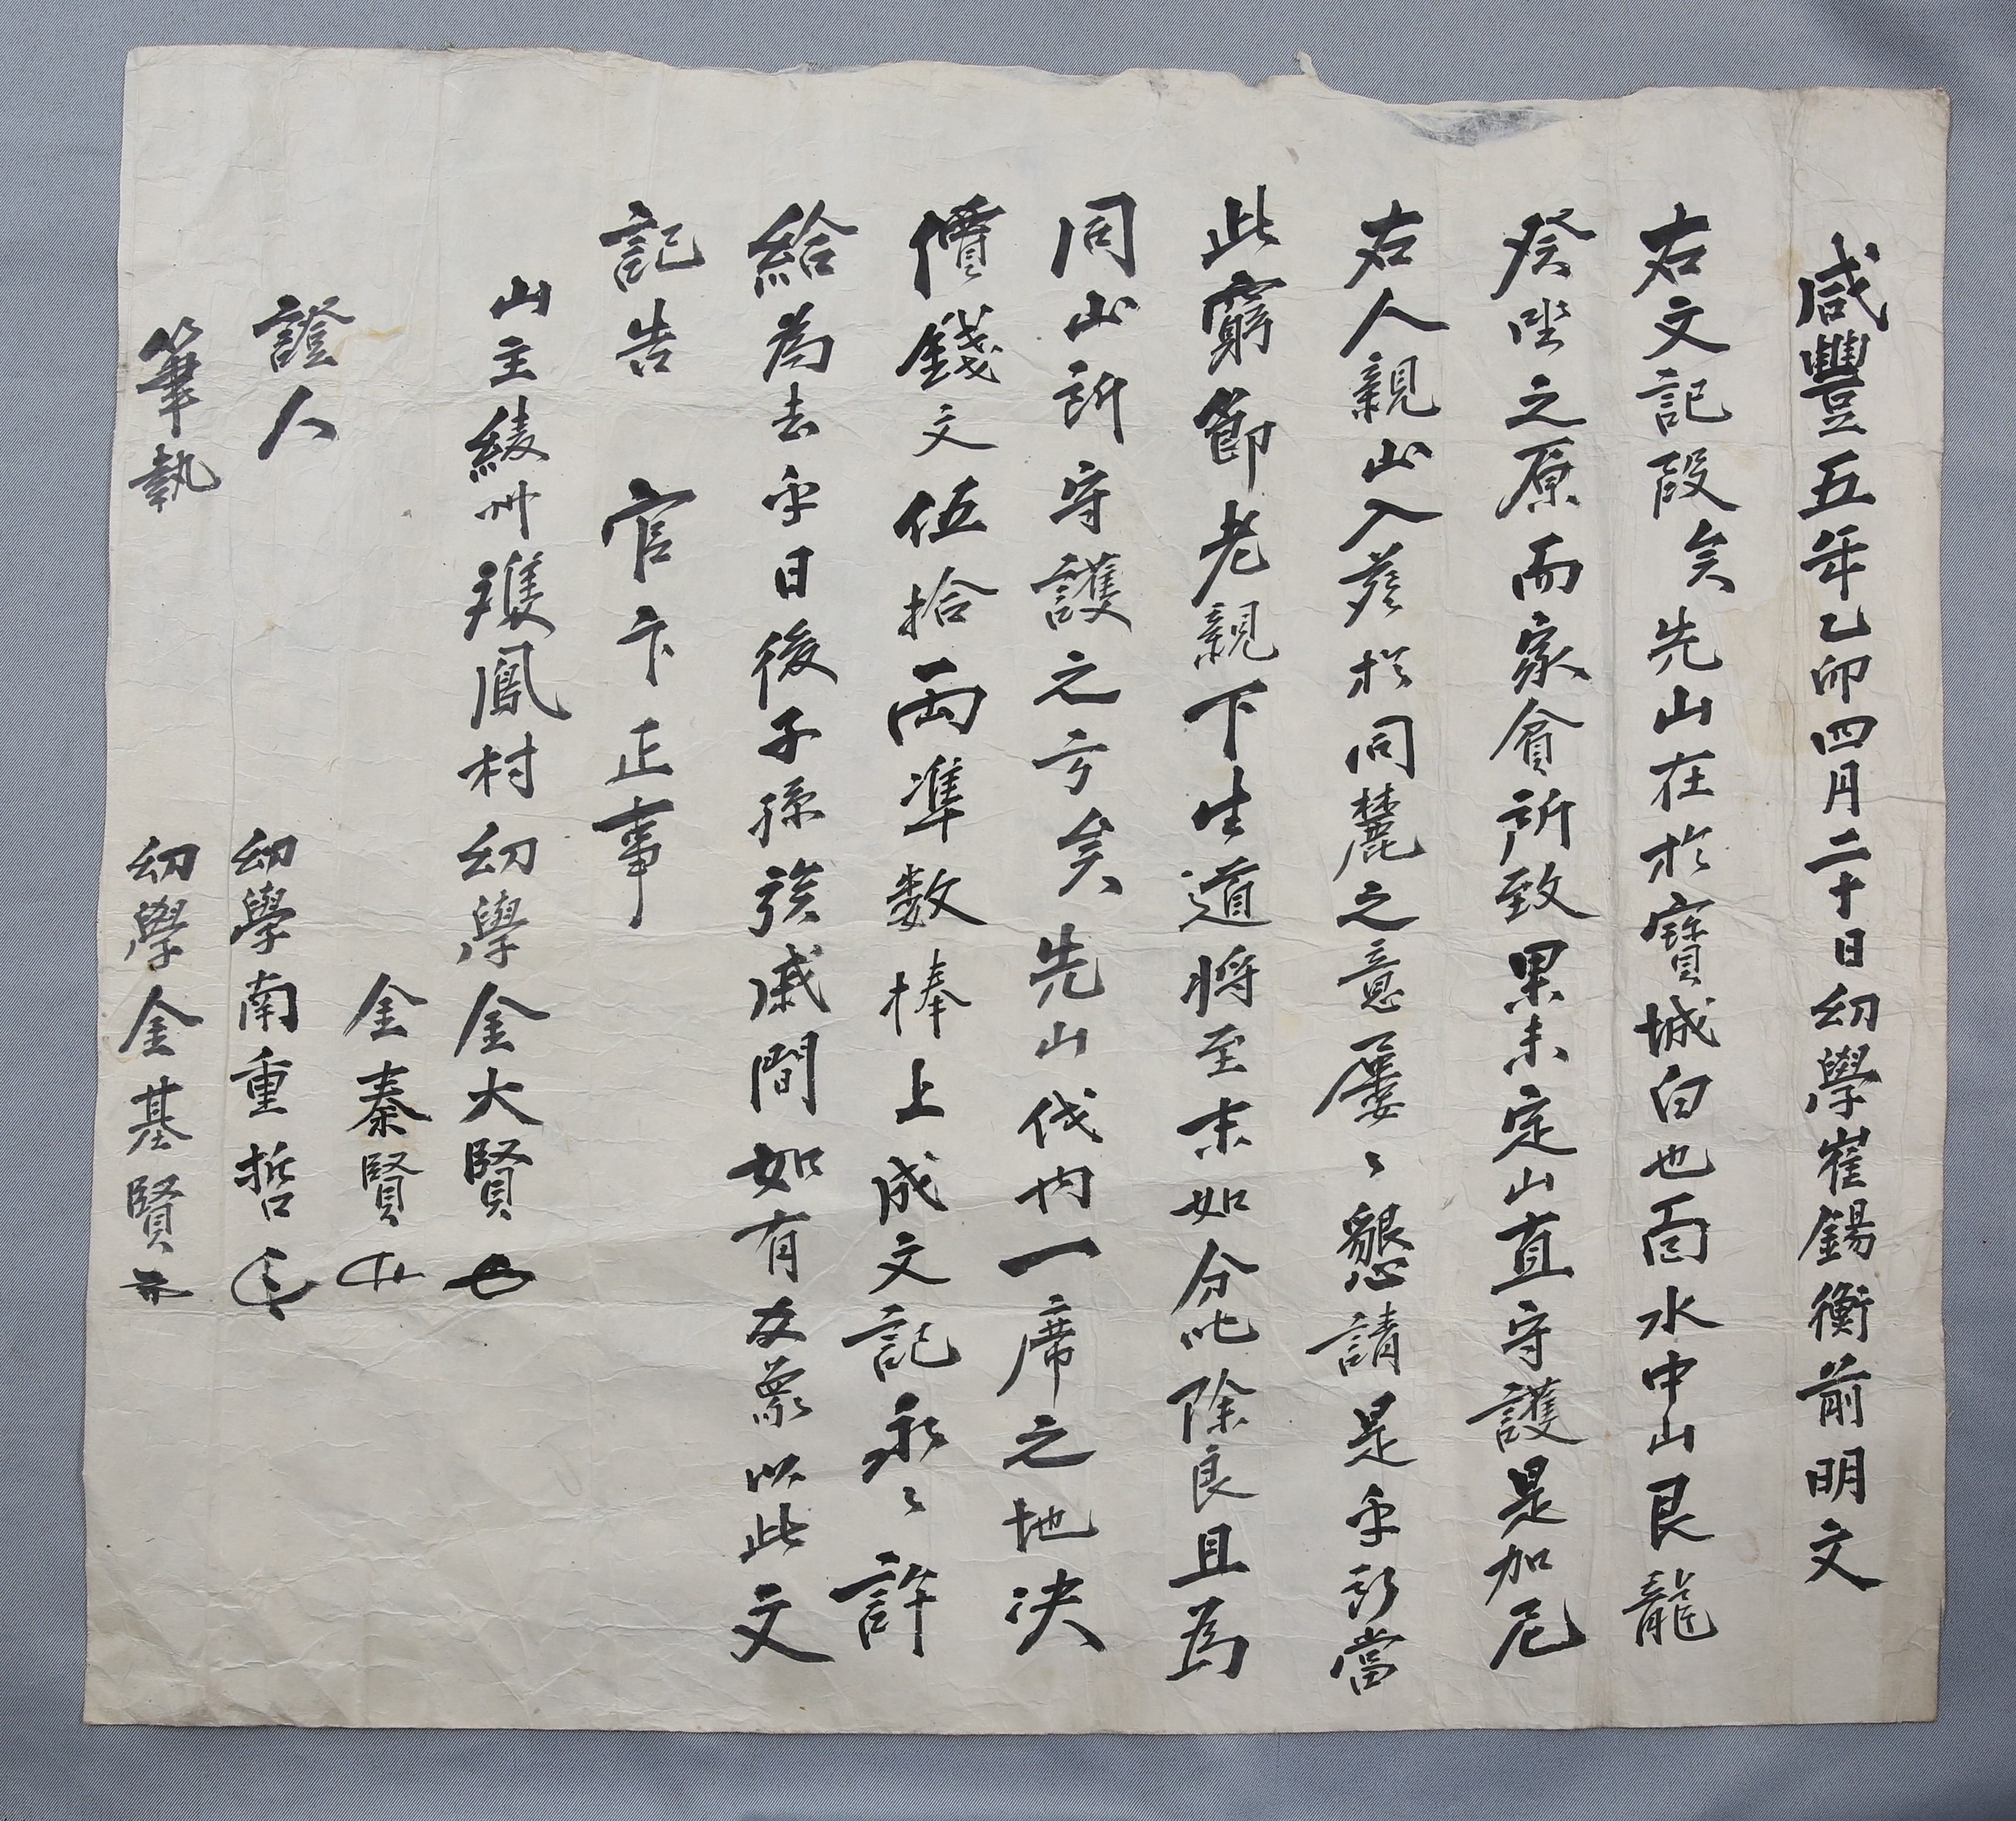 咸豐五年乙卯四月二十日幼學崔錫衡前明文
右文記段矣先山在於寶城白也面水中山艮龍
癸坐之原而家貧所致累未定山直守護是加尼
右人親山入葬於同麓之意屢〻懇請是乎所當
此窮節老親下生道將至末如分叱除良且爲
同山所守護之亏矣先山伐內一席之地決
價錢文伍拾兩準數捧上成文記永〻許
給爲去乎日後子孫族戚間如有爻象以此文
記告 官卞正事
山主綾州雙鳳村幼學金大賢
金秦賢
證人 幼學南重哲
筆執 幼學金基賢